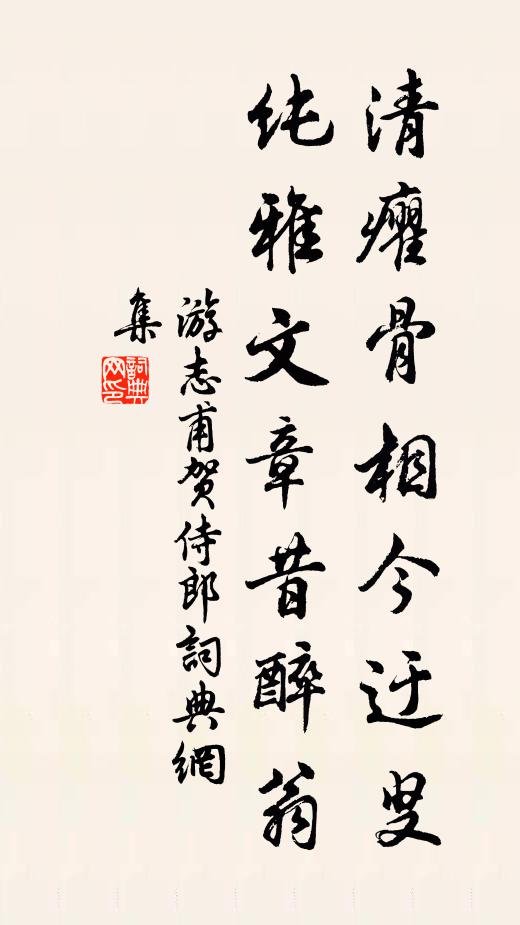 清癯骨相今迂叟
纯雅文章昔醉翁
游志甫贺侍郎詞典網
集
詞典网印